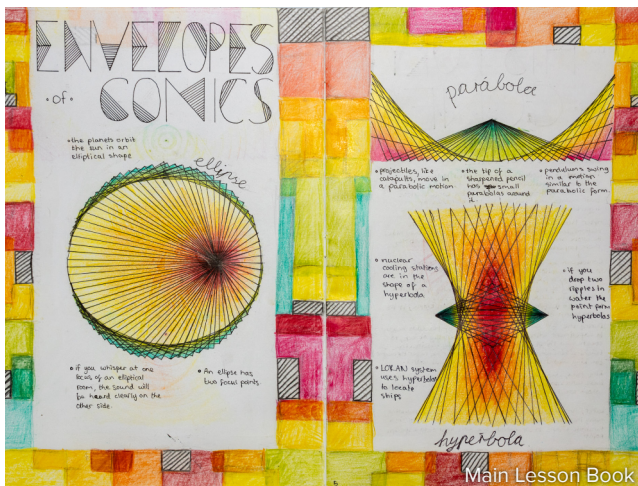 ENVELOPES
• of • CONICS
• the planets orbit
the sun in an
elliptical shape
ellipse
• if you whisper at one
focus of an elliptical
room, the sound will
be heard clearly on the
other side.
• An ellipse has
two focus points.
parabola
• projectiles, like
catapults, move in
a parabolic motion.
• the tip of a
sharpened pencil
has small
parabolas around
it
• pendulums swing
in a motion
similar to the
parabolic form.
• nuclear
cooling stations
are in the
shape of a
hyperbola
• if you
drop two
ripples in
water the
point form
hyperbolas
• LORAN system
uses hyperbolas
to locate
ships
hyperbola
Main Lesson Book